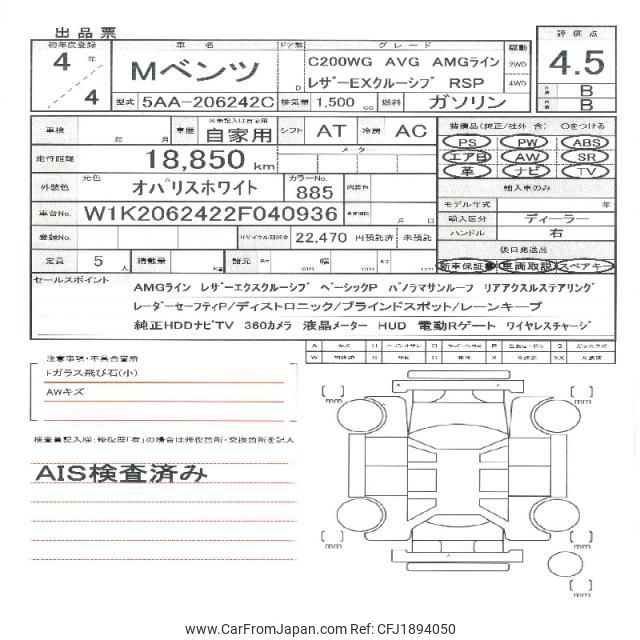 出品票
初年度登録 車名 ドア数 グレード 駆動 評価点
4年 4
Mベンツ
D
C200WG AVG AMGライン
レザーEXクルーシブ RSP
2WD
4WD
4.5
型式 5AA-206242C 排気量 1,500 cc 燃料 ガソリン
内装 B
B
車検 年 月 車歴 ※未記入は自家用 自家用 シフト AT 冷房 AC
装備品(純正/社外 含) Oをつける
PS PW ABS
エアB AW SR
革 ナビ TV
走行距離 18,850 km メーター
外装色 元色 オパリスホワイト カラーNo. 885 内装色
輸入車のみ
モデル年式 年
輸入区分 ディーラー
ハンドル 右
車台No. W1K2062422F040936 月 日
登録No. リサイクル預託金 22,470 円預託済 未預託
後日発送品
新車保証書 車両取説 スペアキー
定員 5 人 積載量 kg 諸元 cm cm cm
セールスポイント
AMGライン レザーエクスクルーシブ ベーシックP パノラマサンルーフ リアアクスルステアリング
レーダーセーフティP/ディストロニック/ブラインドスポット/レーンキープ
純正HDDナビTV 360カメラ 液晶メーター HUD 電動Rゲート ワイヤレスチャージ
注意事項・不具合箇所
Fガラス飛び石(小)
AWキズ
検査員記入欄:修復歴「有」の場合は修復箇所・交換箇所を記入
AIS検査済み
mm
mm
mm
mm
mm
www.CarFromJapan.com Ref: CFJ1894050